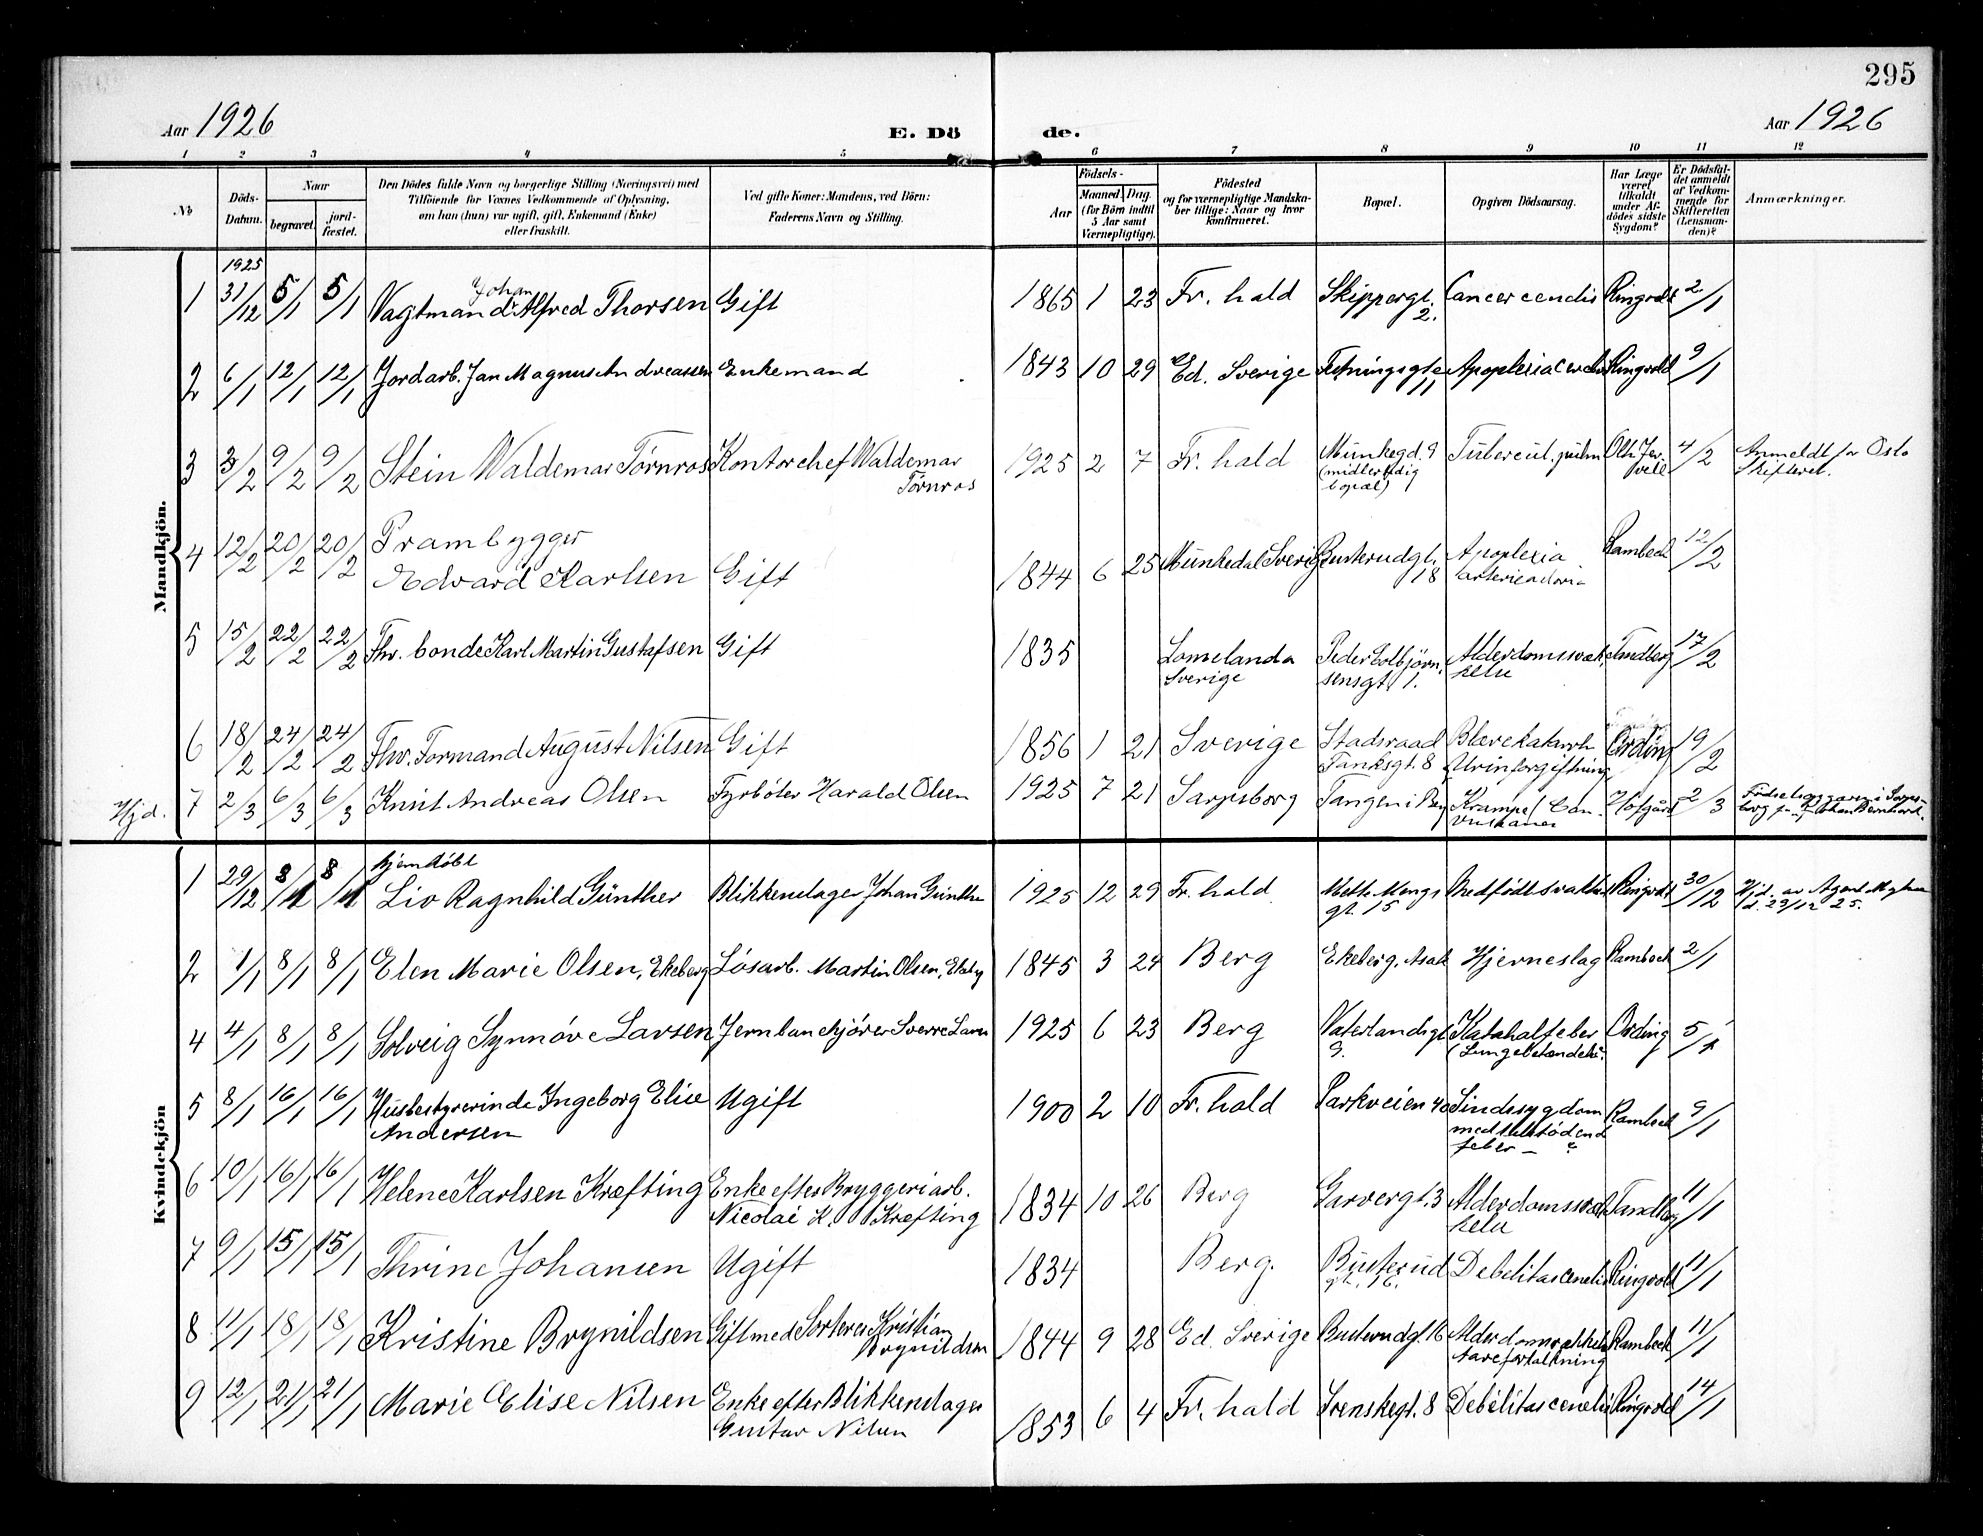 295
Aar 1926
E. Dö
de.
Aar 1926
1 2 3 4 5 6 7 8 9 10 11 12
No
Döds-
Datum.
Naar
begravet.
jord-
fæstet.
Den Dödes fulde Navn og borgerlige Stilling (Næringsvei) med
Tilföiende for Voxnes Vedkommende af Oplysning,
om han (hun) var ugift, gift, Enkemand (Enke)
eller fraskilt.
Ved gifte Koner: Mandens, ved Börn:
Faderens Navn og Stilling.
Födsels-
Aar
Maaned.
Dag.
(for Börn indtil
5 Aar samt
Værnepligtige).
Födested
og for værnepligtige Mandska-
ber tillige: Naar og hvor
konfirmeret.
Bopæl.
Opgiven Dödsaarsag.
Har Læge
været
tilkaldt
under Af-
dödes sidste
Sygdom?
Er Dödsfal-
det anmeldt
af Vedkom-
mende for
Skifteretten
(Lensman-
den)?
Anmærkninger.
Mandkjön.
1925
1 31/12 5/1 5/1 Vagtmand Johan Alfred Thorsen Gift 1865 1 23 Fr. hald Skippergt. 2. Cancer Ringvold 2/1
2 6/1 12/1 12/1 Jordarb. Jan Magnus Andreassen Enkemand 1843 10 29 Ed. Sverige Fetningsgte 11 Apoplexia cerebri Ringvold 9/1
3 3/2 9/2 9/2 Stein Waldemar Törnros Kontorchef Waldemar Törnros 1925 2 7 Fr. hald Munkegd. 9 (midlertidig bopæl) Tubercul. pulm 4/2 Anmeldt for Oslo Skifteret.
4 12/2 20/2 20/2 Prambygger
Edvard Karlsen Gift 1844 6 25 Munkedal Sverige Busterudgt. 18 Apoplexia Rambech 12/2
5 15/2 22/2 22/2 Fhv. bonde Karl Martin Gustafsen Gift 1835 Lomelanda Sverige Peder Colbjörnsensgt. 1. Alderdomssvakhelse Tandberg 17/2
6 18/2 24/2 24/2 Fhv. Formand August Nilsen Gift 1856 1 21 Sverige Stadsraad Tanksgt. 8 Blærekatarrh Urinforgiftning Ording 19/2
Hjd. 7 2/3 6/3 6/3 Knut Andreas Olsen Fyrböter Harald Olsen 1925 7 21 Sarpsborg Tangen i Berg Krampe Hofgård 2/3
Kvindekjön
1 29/12 8/1 8/1 hjemdöbt
Liv Ragnhild Günther Blikkenslager Johan Günther 1925 12 29 Fr. hald gt. 15 Medfödt svakhet Ringvold 30/12 Hjd. av Agent d. 29/12 25.
2 1/1 8/1 8/1 Elen Marie Olsen, Ekeberg Lösarb. Martin Olsen, Ekebg 1845 3 24 Berg Ekeberg, Asak Hjerneslag Rambech 2/1
4 4/1 8/1 8/1 Solveig Synnöve Larsen Jernbanekjörer Sverre Larsen 1925 6 23 Berg Vaterlandsgt 9. Katahalfeber (Lungebetændelse Ording 5/1
5 8/1 16/1 16/1 Husbestyrerinde Ingeborg Elise
Andersen Ugift 1900 2 10 Fr. hald Parkveien 40 Sindssygdom med tilstödende feber — Rambech 9/1
6 10/1 16/1 16/1 Helene Karlsen Kræfting Enke efter Bryggeriarb.
Nicolai K. Kræfting 1834 10 26 Berg Garvergt. 3 Alderdomssvakhelse Tandberg 11/1
7 9/1 15/1 15/1 Thrine Johansen Ugift 1834 Berg. Busterud gt. 16. Debelitas cenelis Ringvold 11/1
8 11/1 18/1 18/1 Kristine Brynildsen Gift med Sorterer Kristian
Brynildsen 1844 9 28 Ed. Sverige Busterudgt. 16 Aareforkalkning Rambech 11/1
9 12/1 21/1 21/1 Marie Elise Nilsen Enke efter Blikkenslager
Gustav Nilsen 1853 6 4 Fr. hald Svenskegt. 8 Debilitas cenelis Ringvold 14/1